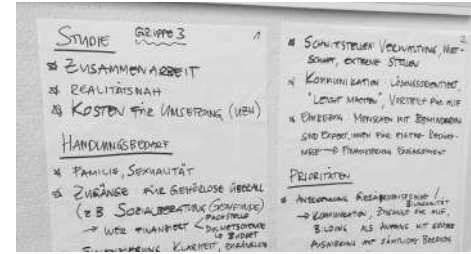 STUDIE GRUPPE 3 1
ZUSAMMENARBEIT
REALITÄTSNAH
KOSTEN FÜR UMSETZUNG (UBH)
HANDLUNGSBEDARF
FAMILIE, SEXUALITÄT
ZUGÄNGE FÜR GEHÖRLOSE ÜBERALL
(z B SOZIALBERATUNG GEMEINDE)
→ WER FINANZIERT FACHSTELLE
DOLMETSCHER
→ BUDGET
FINANZIERUNG KLARHEIT,
2
SCHNITTSTELLEN VERWALTUNG, WIRT-
SCHAFT, EXTERNE STELLEN
KOMMUNIKATION LÖSUNGSORIENTIERT,
"LEICHT MACHEN", VORTEILE FÜR ALLE
EINBEZUG MENSCHEN MIT BEHINDERUNG
SIND EXPERT_INNEN FÜR
→ FINANZIERUNG ENGAGEMENT
PRIORITÄTEN
ANERKENNUNG GEBÄRDENSPRACHE /
BILINGUALITÄT
→ KOMMUNIKATION, ZUGÄNGE FÜR ALLE,
BILDUNG ALS ANFANG MIT GROSSER
AUSWIRKUNG AUF SÄMTLICHE BEREICHE